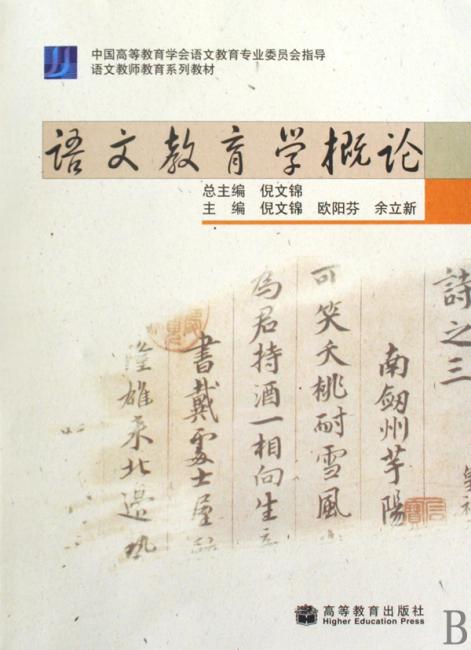 中国高等教育学会语文教育专业委员会指导
语文教师教育系列教材
语文教育学概论
总主编 倪文锦
主 编 倪文锦 欧阳芬 余立新
詩之三
南劔州芋陽
可笑夭桃耐雪風
為君持酒一相向生
書戴處士屋
雄来北邉
高等教育出版社
Higher Education Press
B